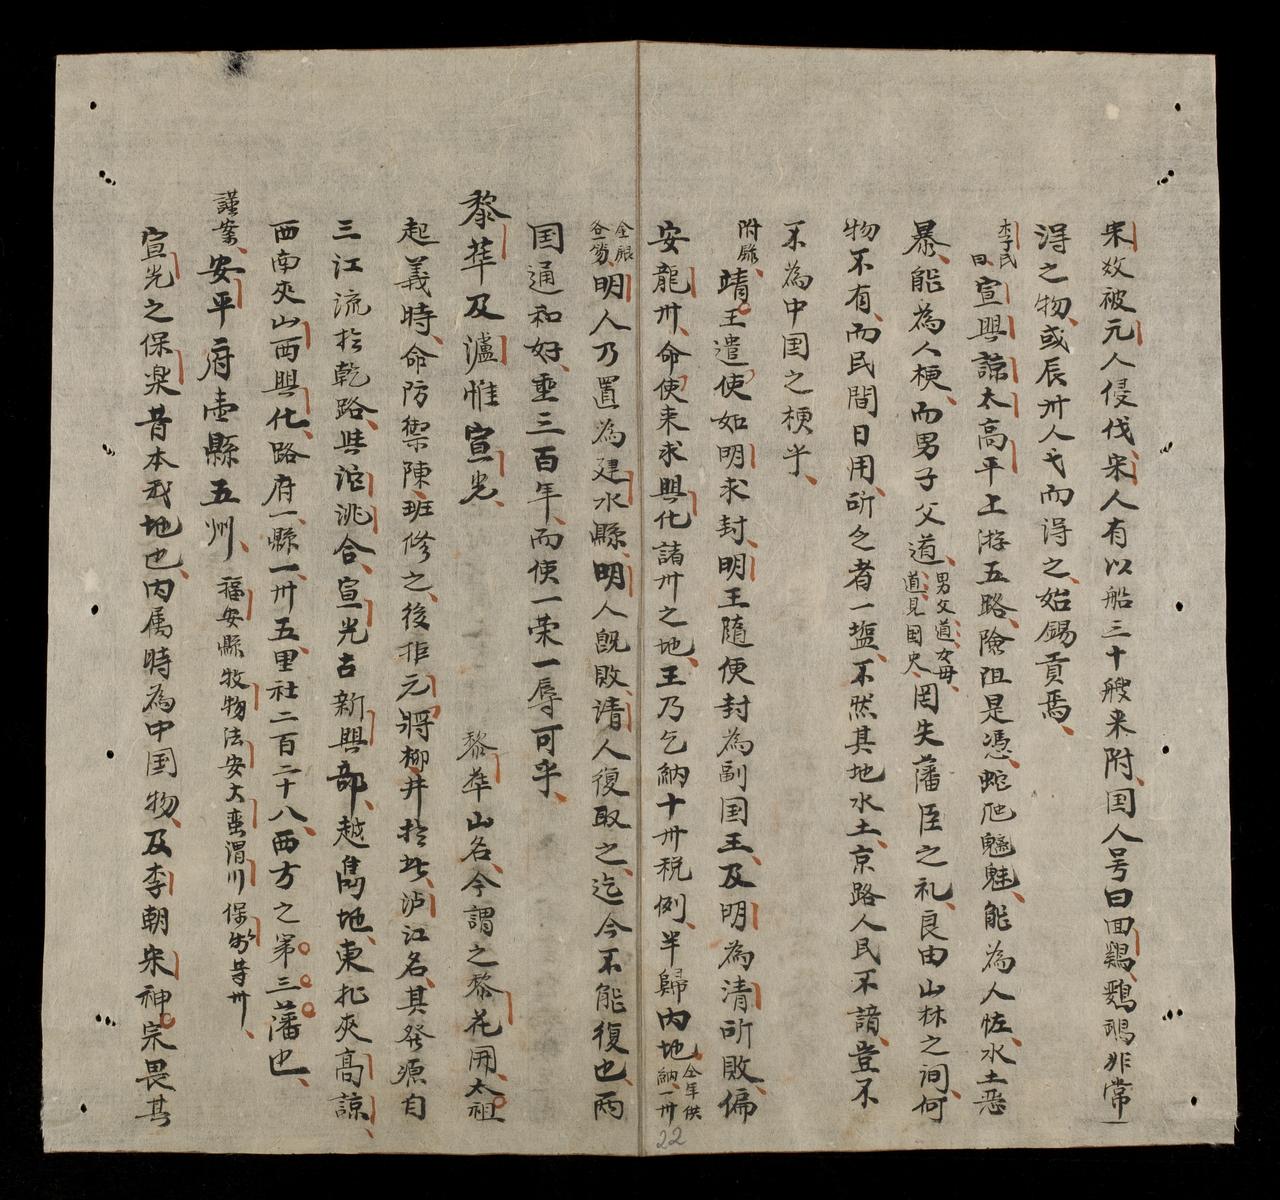 宋攷被元人侵伐宋人有以船三十艘来附国人号曰囬鷄鸚鵡非常
淂之物或辰卅人弋而淂之始錫貢焉
李氏曰宣興諒太高平上游五路險阻是憑蛇虺魑魅能為人恠水土惡
暴能為人梗而男子父道男父道女母道見国史罔失藩臣之礼良由山林之词何
物不有而民間日用所乏者一塩不然其地水土京路人民不諳豈不
不為中国之梗乎
附錄靖王遣使如明求封明王隨使封為副国王及明為清所敗偏
安龍卅命使来求興化諸卅之地王乃乞納十卅税例半歸内地全年供納一卅
金銀各笏明人乃置為建水縣明人旣敗清人復取之迄今不能復也両
国通和好垂三百年而使一荣一辱可乎
黎蕐及瀘惟宣光 黎蕐山名今謂之黎花開太祖
起義時命防禦陳班修之後拒元將柳井於此泸江名其發源自
三江流於乾路與沱洮合宣光古新興部越雋地東北夾高諒
西南夾山西興化路府一縣一卅五里社二百二十八西方之第三藩也
謹案安平府壹縣五州福安縣牧物法安大蛮渭川保等卅
宣光之保楽昔本我地也内属時為中国物及李朝宋神宗畏其
22